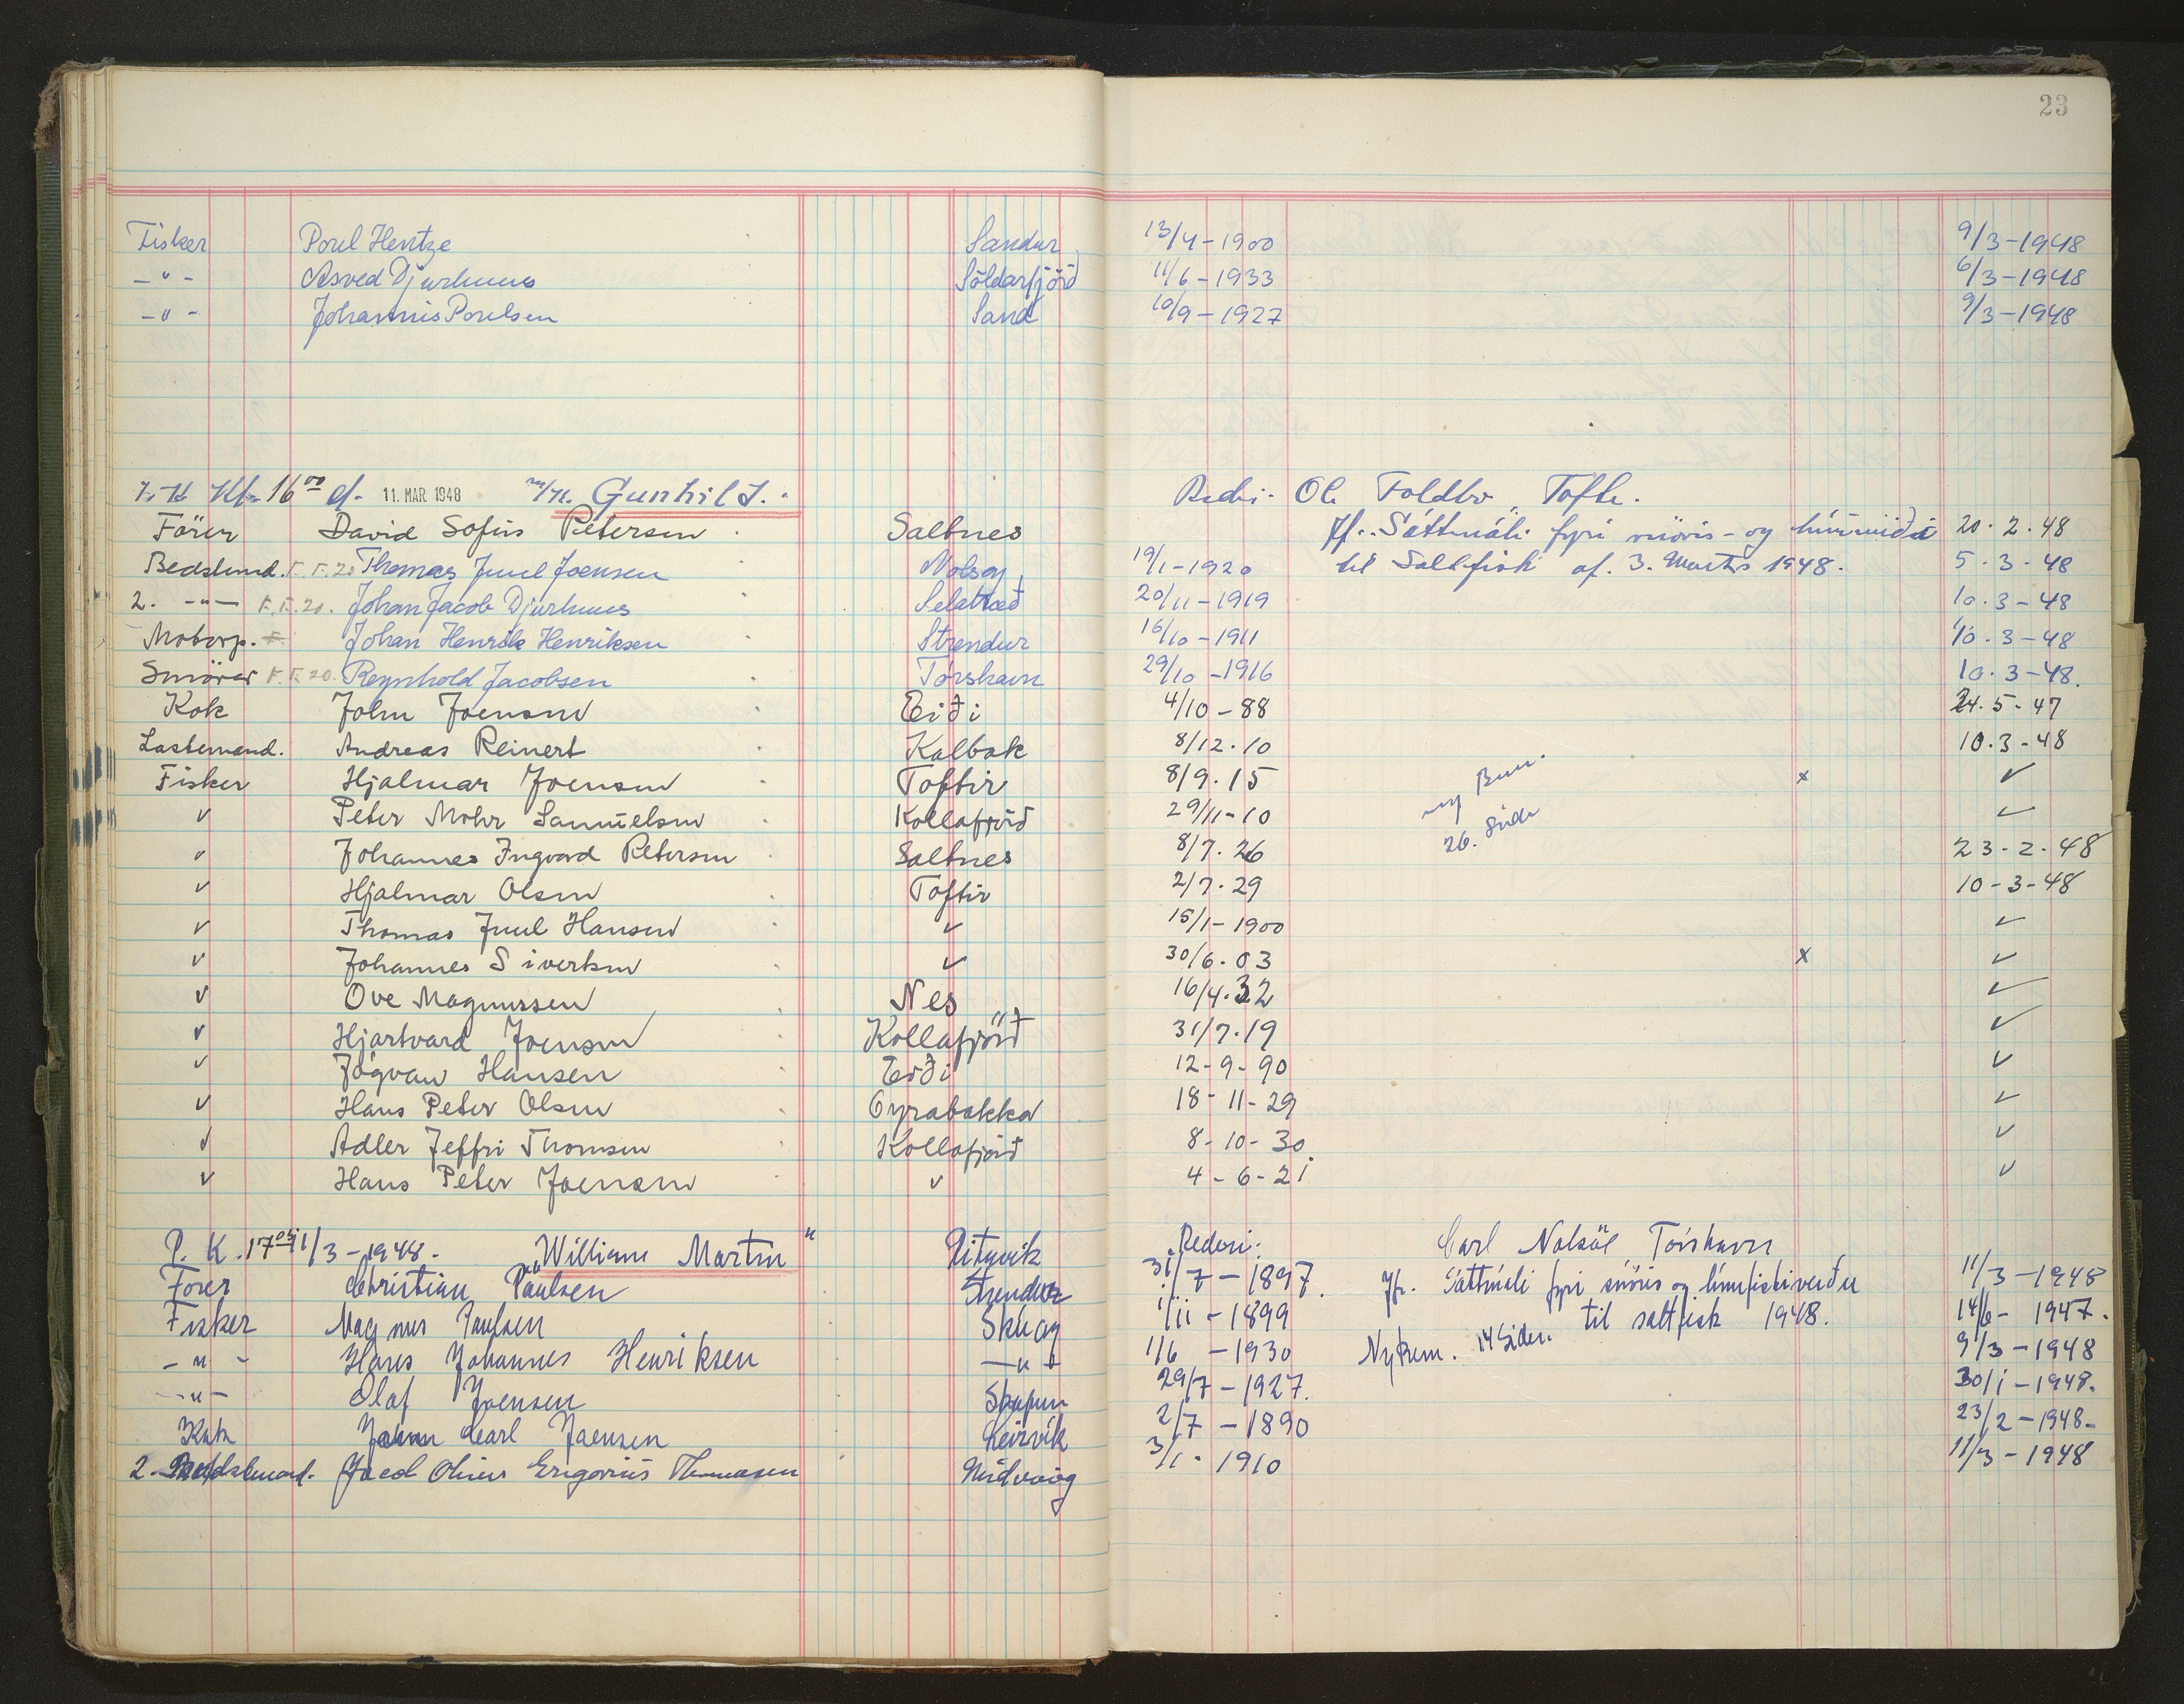 23
Fisker Poul Hentze Sandur 13/4-1900 9/3-1948
-"- Asved Djurhuus Söldarfjörð 11/6-1933 6/3-1948
-"- Johannis Poulsen Sand 10/9-1927 9/3-1948
Kl. 16 00 d. 11. MAR 1948 m/sk. Gunhild J. Rederi: Tofte.
Förer David Sofus Petersen Saltnes Jfr. Sáttmáli fyri snöris- og línuveiði 20.2.48
Bedstmd. F.F.20 Thomas Juul Joensen Nolsoy 19/1-1920 til Saltfisk af. 3. Marts 1948. 5.3-48
2. -"- F.F.20. Johan Jacob Djurhuus Selatrað 20/11-1919 10.3-48
Motorp. Johan Henrik Henriksen Strendur 16/10-1911 10.3-48
Smörer F.F.20. Reynhold Jacobsen Tórshavn 29/10-1916 10.3-48.
Kok John Joensen Eiði 4/10-88 24.5-47
Lastemand. Andreas Reinert Kalbak 8/12.10 10.3-48
Fisker Hjalmar Joensen Toftir 8/9.15 x ✓
✓ Peter Mohr Samuelsen Kollafjörð 29/11-10 ny ✓
✓ Johannes Ingvard Petersen Saltnes 8/7.26 26. Side 23-2.48
✓ Hjalmar Olsen Toftir 2/7.29 10-3-48
✓ Thomas Juul Hansen ✓ 15/1-1900 ✓
✓ Johannes Sivertsen ✓ 30/6.03 x ✓
✓ Ove Magnussen Nes 16/4.32 ✓
✓ Hjartvard Joensen Kollafjörð 31/7.19 ✓
✓ Jógvan Hansen Eiði 12-9-90 ✓
✓ Hans Peter Olsen Oyrabakka 18-11-29 ✓
✓ Adler Jeffri Thomsen Kollafjörð 8-10-30 ✓
✓ Hans Peter Joensen ✓ 4-6-21 ✓
P. K. 17 05 11/3-1948. "William Martin" Rituvik Rederi: Carl Nolsöe Tórshavn
Förer Christian Paulsen Strendur 31/7-1897. Jfr. Sáttmáli fyri snöris og línufiskiveiðu 11/3-1948
Fisker Magnus Paulsen Skúoy 1/11-1899 til saltfisk 1948. 14/6-1947.
-"- Hans Johannes Henriksen -"- 1/6-1930 Nykom. 14 Siden 9/3-1948
-"- Olaf Joensen Skopun 29/7-1927. 30/1-1948.
Kok Johan Carl Joensen Leirvík 2/7-1890 23/2-1948-
2. Bedstmand. Jacob Oliver Gregorius Thomasen Miðvaág 3/1-1910 11/3-1948